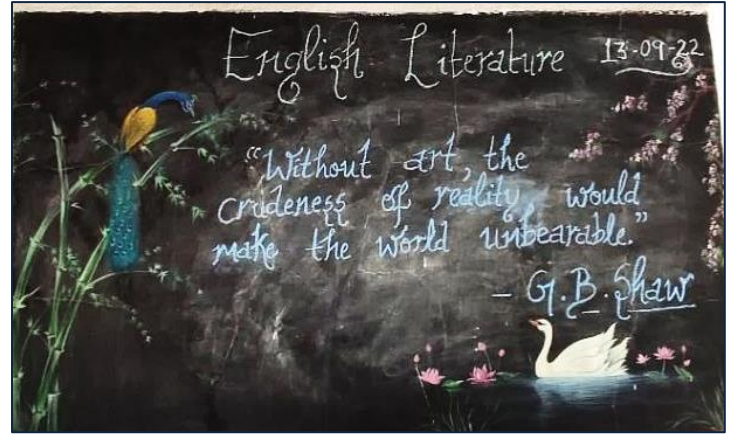 English Literature 13-09-22
"Without art, the
crudeness of reality, would
make the world unbearable."
- G.B. Shaw